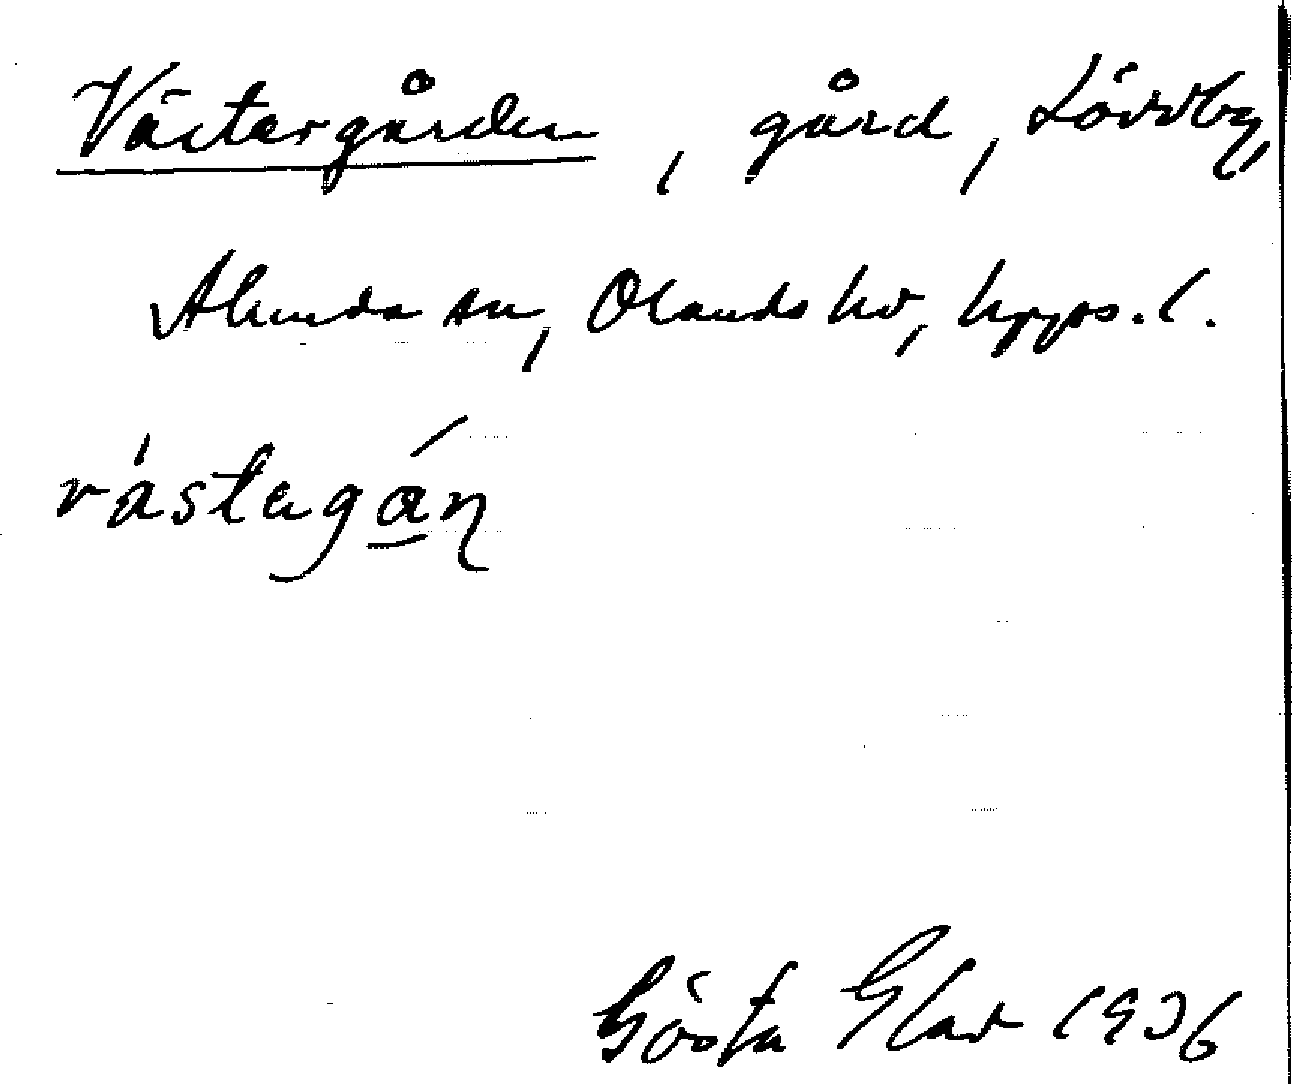 Västergården, gård, Lövsby,
Alunda sn, Olands hd, Upps. l.
västegån
Gösta Elav 1936